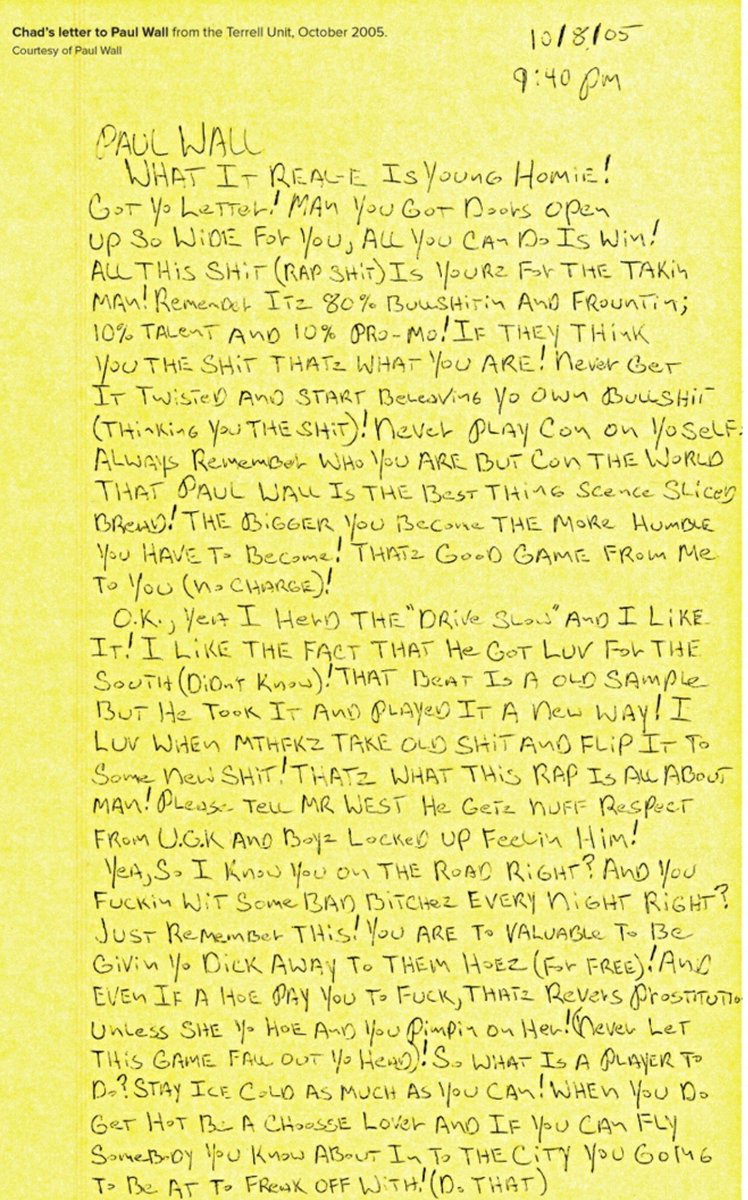 Chad's letter to Paul Wall from the Terrell Unit, October 2005.
Courtesy of Paul Wall
10/8/05
9:40 pm
PAUL WALL
WHAT IT REAL-E IS YOUNG HOMIE!
GOT YO LETTER! MAN YOU GOT DOORS OPEN
UP SO WIDE FOR YOU, ALL YOU CAN DO IS WIN!
ALL THIS SHIT (RAP SHIT) IS YOURZ FOR THE TAKIN
MAN! REMEMBER ITZ 80% BULLSHITIN AND FROUNTIN;
10% TALENT AND 10% PRO-MO! IF THEY THINK
YOU THE SHIT THATZ WHAT YOU ARE! NEVER GET
IT TWISTED AND START BELEAVING YO OWN BULLSHIT
(THINKING YOU THE SHIT)! NEVER PLAY CON ON YOSELF.
ALWAYS REMEMBER WHO YOU ARE BUT CON THE WORLD
THAT PAUL WALL IS THE BEST THING SCENCE SLICED
BREAD! THE BIGGER YOU BECOME THE MORE HUMBLE
YOU HAVE TO BECOME! THATZ GOOD GAME FROM ME
TO YOU (NO CHARGE)!
O.K., YEA I HERD THE "DRIVE SLOW" AND I LIKE
IT! I LIKE THE FACT THAT HE GOT LUV FOR THE
SOUTH (DIDNT KNOW)! THAT BEAT IS A OLD SAMPLE
BUT HE TOOK IT AND PLAYED IT A NEW WAY! I
LUV WHEN MTHFKZ TAKE OLD SHIT AND FLIP IT TO
SOME NEW SHIT! THATZ WHAT THIS RAP IS ALL ABOUT
MAN! PLEASE TELL MR WEST HE GETZ NUFF RESPECT
FROM U.G.K AND BOYZ LOCKED UP FEELIN HIM!
YEA, SO I KNOW YOU ON THE ROAD RIGHT? AND YOU
FUCKIN WIT SOME BAD BITCHEZ EVERY NIGHT RIGHT?
JUST REMEMBER THIS! YOU ARE TO VALUABLE TO BE
GIVIN YO DICK AWAY TO THEM HOEZ (FOR FREE)! AND
EVEN IF A HOE PAY YOU TO FUCK, THATZ REVERS PROSTITUTIO
UNLESS SHE YO HOE AND YOU PIMPIN ON HER! (NEVER LET
THIS GAME FALL OUT YO HEAD)! SO WHAT IS A PLAYER TO
DO? STAY ICE COLD AS MUCH AS YOU CAN! WHEN YOU DO
GET HOT BE A CHOOSSE LOVER AND IF YOU CAN FLY
SOMEBODY YOU KNOW ABOUT IN TO THE CITY YOU GOING
TO BE AT TO FREAK OFF WITH! (DO THAT)